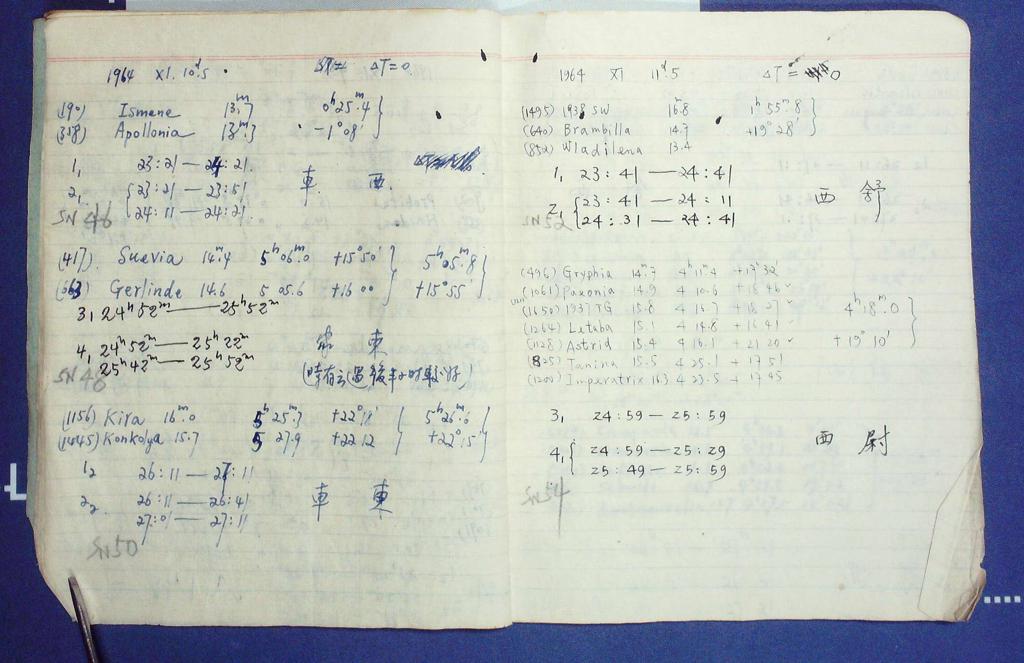 1964 XI. 10ᵈ.5 ΔT=0
(190) Ismene 13ᵐ.7 0ʰ25ᵐ.4
(358) Apollonia 13ᵐ.3 -1°08'
1, 23:21 — 24:21
2, 23:21 — 23:51 車 西
24:11 — 24:21
SN 46
(417) Suevia 14ᵐ.4 5ʰ06ᵐ.0 +15°50' 5ʰ05ᵐ.8
(663) Gerlinde 14.6 5 05.6 +16 00 +15°55'
3, 24ʰ52ᵐ — 25ʰ52ᵐ
4, 24ʰ52ᵐ — 25ʰ22ᵐ 東
25ʰ42ᵐ — 25ʰ52ᵐ
SN 48
(1156) Kira 16ᵐ.0 5ʰ25ᵐ.3 +22°18' 5ʰ26ᵐ.6
(1445) Konkolya 15.7 5 27.9 +22 12 +22°15'
1₂ 26:11 — 27:11
2₂ 26:11 — 26:41 車 東
27:01 — 27:11
SN50
1964 XI 11ᵈ.5 ΔT = 0
(1495) 1938 SW 16ᵐ.8 1ʰ55ᵐ.8
(640) Brambilla 14.7 +19°28'
(852) Wladilena 13.4
1, 23:41 — 24:41
2, 23:41 — 24:11 西 舒
24:31 — 24:41
SN52
(496) Gryphia 14ᵐ.7 4ʰ11ᵐ.4 +17°32'
(1061) Paeonia 14.9 4 10.6 +18 46
(1650) 1937 TG 15.8 4 15.7 +18 27 4ʰ18ᵐ.0
(1264) Letaba 15.1 4 14.8 +16 41
(1128) Astrid 15.4 4 16.1 +21 20 +19°10'
(825) Tanina 15.5 4 25.1 +17 51
(1200) Imperatrix 16.3 4 23.5 +17 45
3, 24:59 — 25:59
4, 24:59 — 25:29 西 尉
25:49 — 25:59
SN54